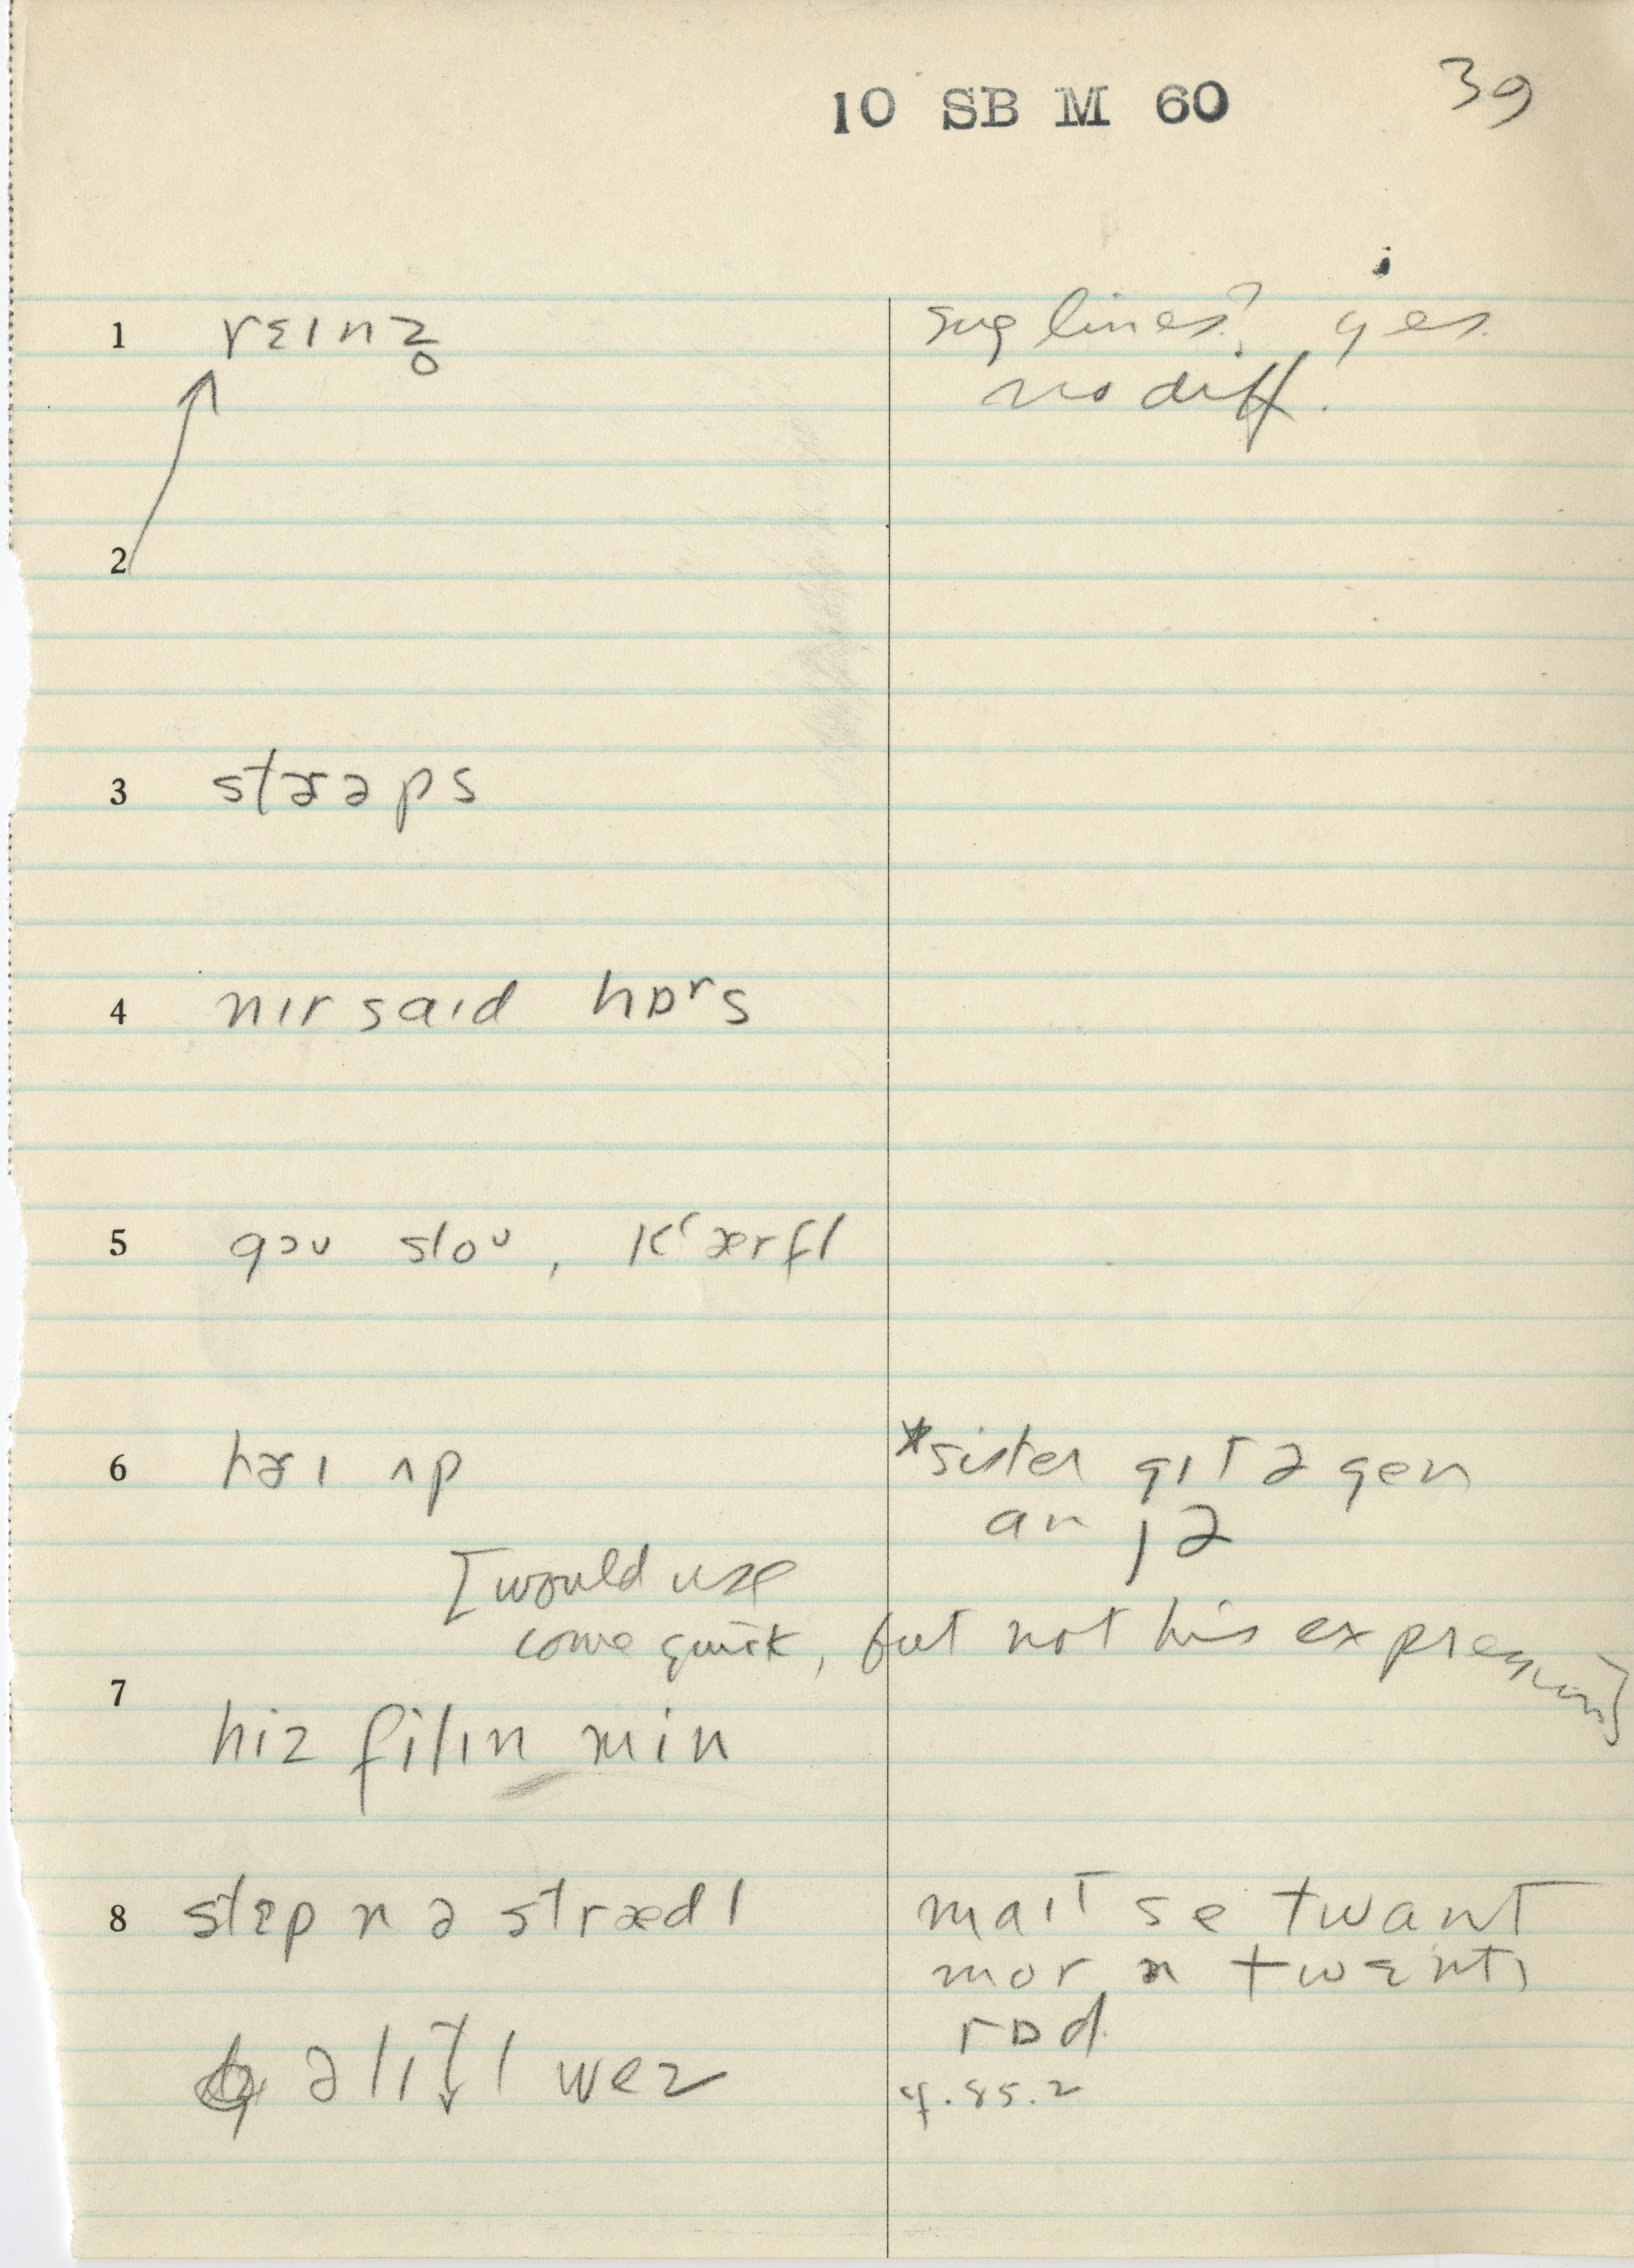 10 SB M 60 39
1 rɛɪnz̥ sug lines? yes.
no diff.
2
3 stɚəps
4 nɪr saɪd hɒʳs
5 goʊ sloʊ, kʻærfl
6 hɚɪ ʌp *sister gɪt ə gen
an jə
[would use
come quick, but not his expression]
7
hiz filɪn min
8 stɛp n ə strædl maɪt se twant
mor n twɛntɪ
rɒd
ə lɪt̬l wez cf. 85.2